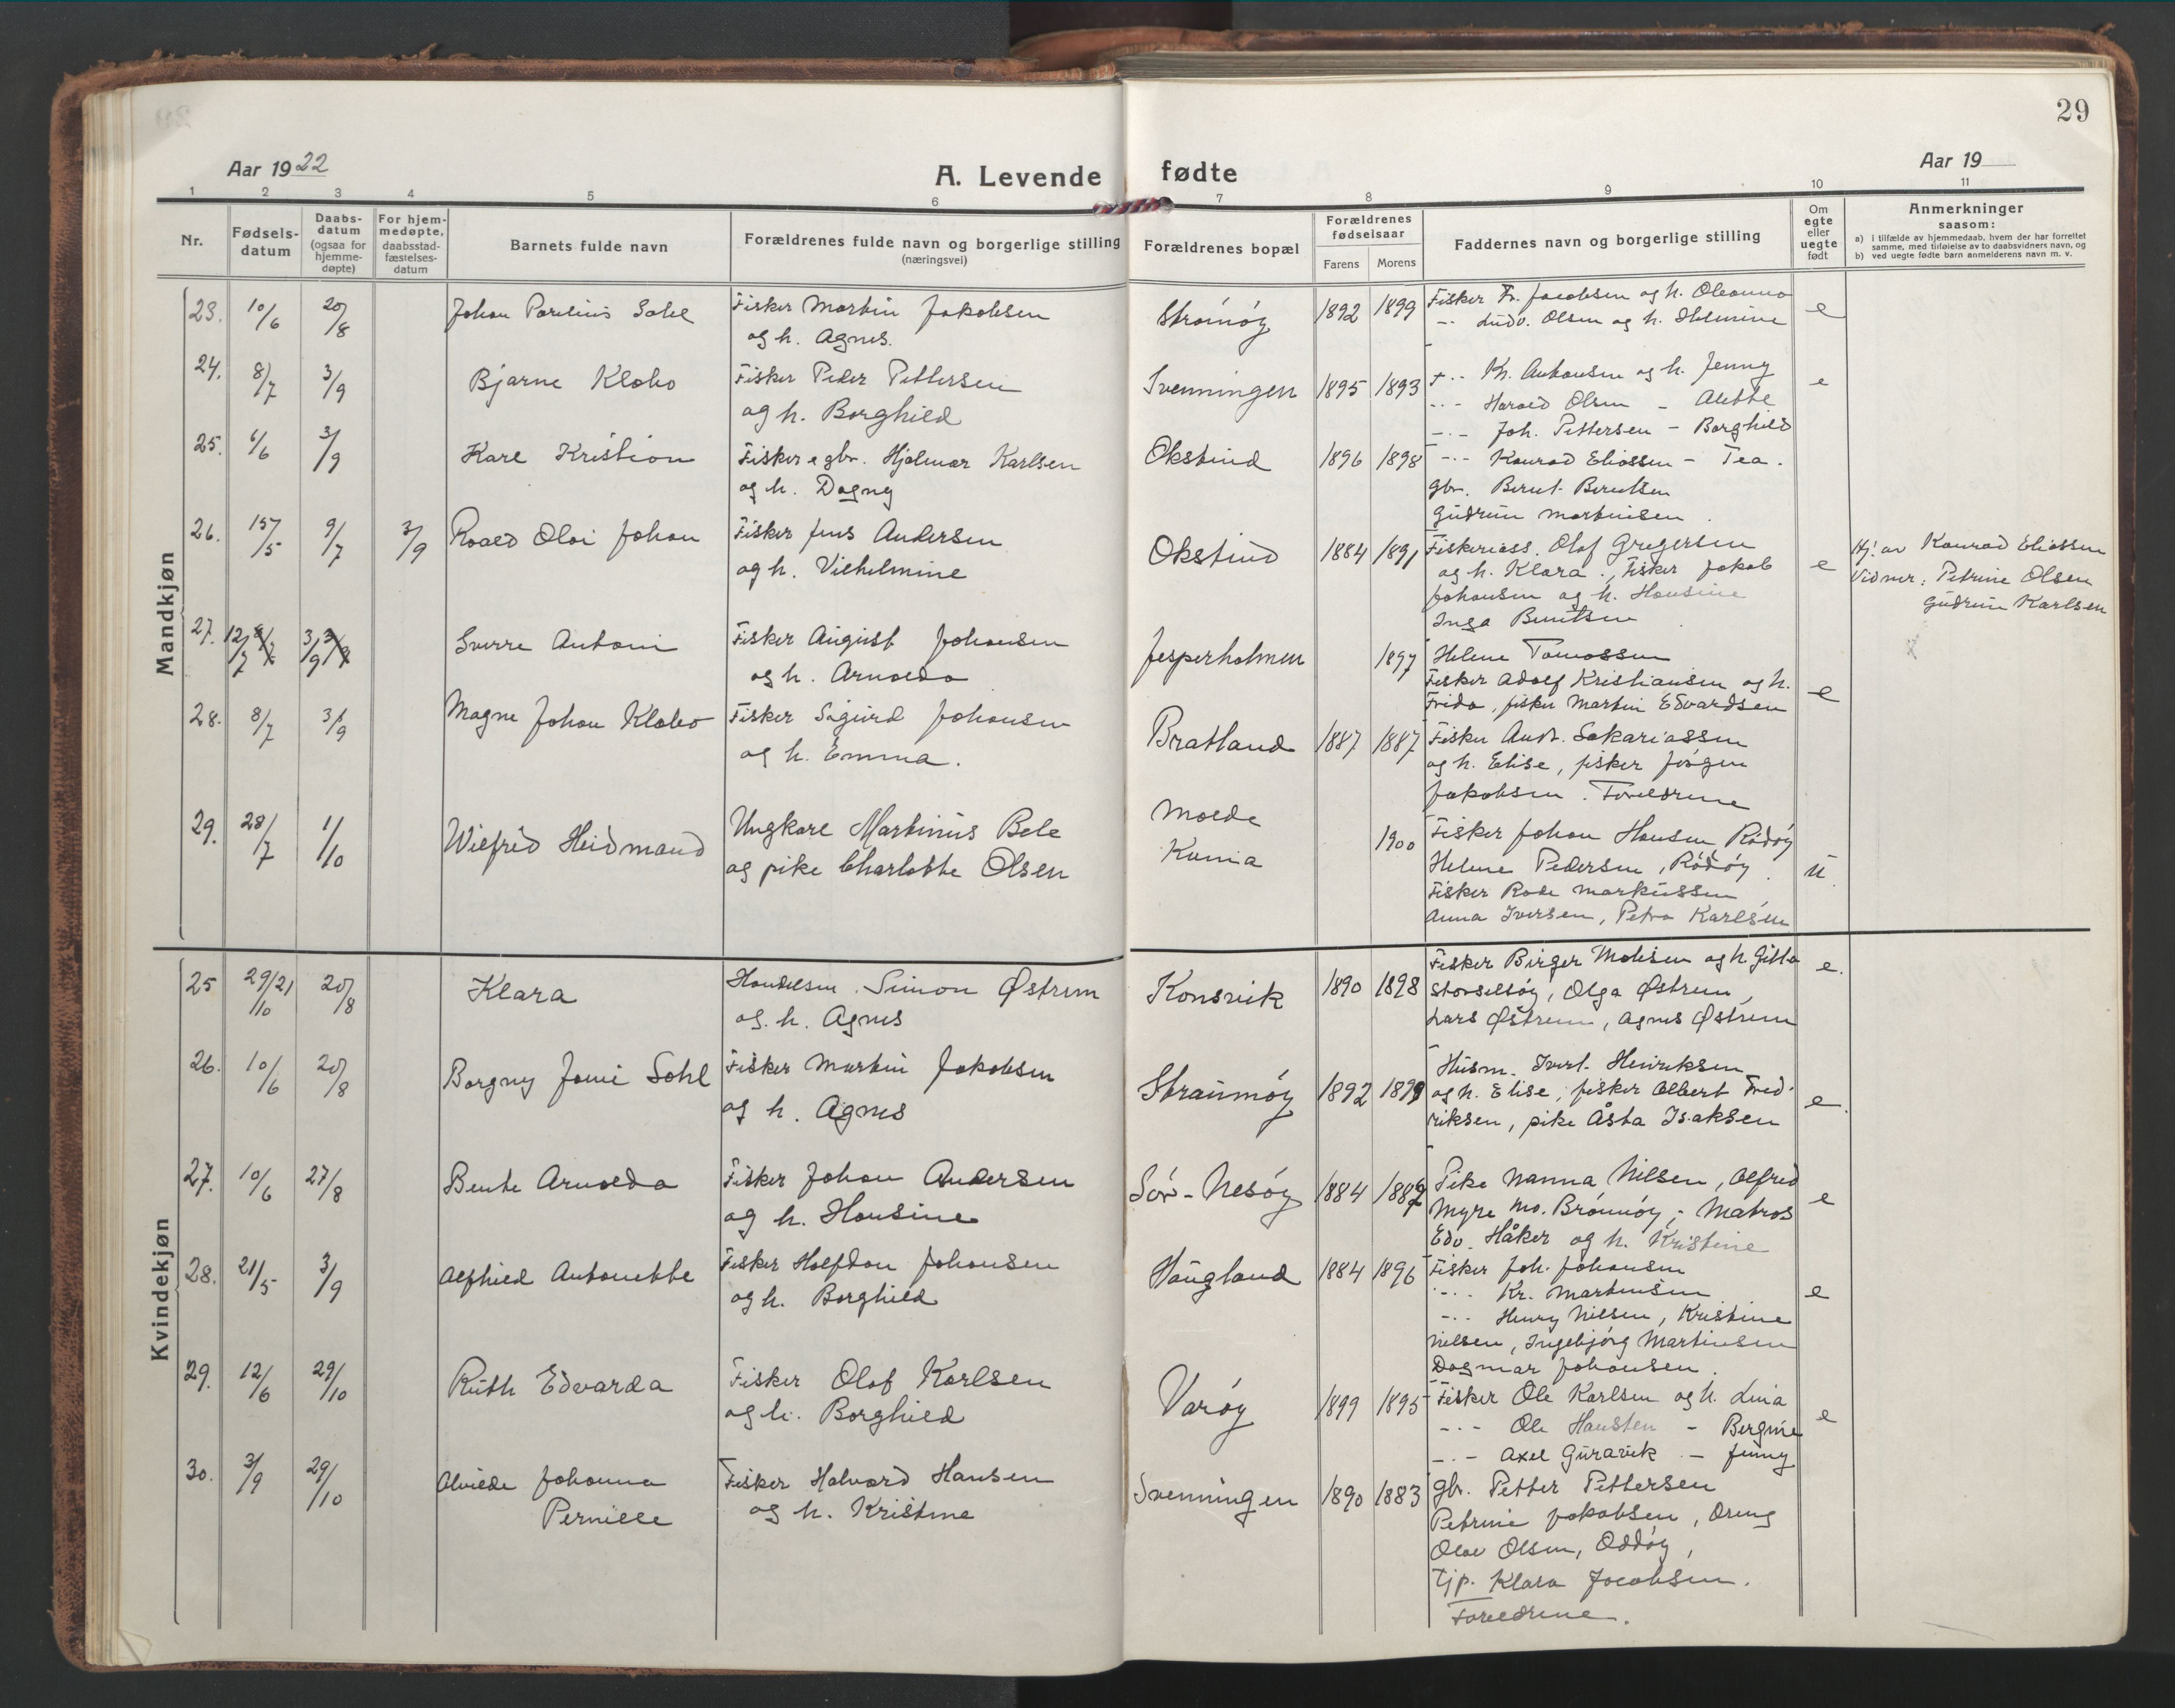 29
Aar 1922
A. Levende fødte
Aar 19
1 2 3 4 5 6 7 8 9 10 11
Nr.
Fødsels-datum
Daabs-datum (ogsaa for hjemme-døpte)
For hjem-medøpte, daabsstad-fæstelses-datum
Barnets fulde navn
Forældrenes fulde navn og borgerlige stilling (næringsvei)
Forældrenes bopæl
Forældrenes fødselsaar
Farens Morens
Faddernes navn og borgerlige stilling
Om egte eller uegte født
Anmerkninger saasom:
a) i tilfælde av hjemmedaab, hvem der har forrettet samme, med tilføielse av to daabsvidners navn, og
b) ved uegte fødte barn anmelderens navn m. v.
Mandkjøn
23. 10/6 20/8 Johan Parelius Dahl
Fisker Martin Jakobsen
og h. Agnes.
Straumøy 1892 1899
Fisker Fr. Jacobsen og h. Oleanna
-- Ludv. Olsen og h. Helmine
e
24. 8/7 3/9 Bjarne Klabo
Fisker Peder Pettersen
og h. Borghild
Svenningen 1895 1893
F -- Kr. Antonsen og h. Jenny
-- Harald Olsen - Alette
-- Joh. Pettersen - Borghild
e
25. 6/6 3/9 Karl Kristian
Fisker e gbr. Hjalmar Karlsen
og h. Dagny
Okstind 1896 1898
-- Konrad Eliassen - Tea.
gbr. Bernt Berntsen
Gudrun Martinisen.
26. 15/5 9/7 3/9 Roald Olai Johan
Fisker Jens Andersen
og h. Vilhelmine
Okstind 1884 1891
Fiskeriass. Olaf Gregersen
og h. Klara., Fisker Jakob
Johansen og h. Hansine
Inga Berntsen
e
Hj. av Konrad Eliassen
Vidner: Petrine Olsen
Gudrun Karlsen
27. 12/7 3/9 Sverre Antoni
Fisker August Johansen
og h. Arnolda
Jesperholmen 1897
Helene Tomassen
Fisker Adolf Kristiansen og h.
Frida, fisker Martin Edvardsen
e
28. 8/7 3/9 Magne Johan Klabo
Fisker Sigurd Johansen
og h. Emma.
Bratland 1887 1887
Fisker Andr. Sakariassen
og h. Elise, fisker Jörgen
Jakobsen. Foreldrene
29. 28/7 1/10 Wilfred Heidmand
Ungkarl Martinius Bele
og pike Charlotte Olsen
Molde
Kunna
1900
Fisker Johan Hansen, Rödöy
Helene Pedersen, Rödöy.
Fisker Rode Markussen
Anna Iversen, Petra Karlsen
u.
Kvindekjøn
25 29/10 21 20/8 Klara
Handelsm. Simon Østrem
og. h. Agnes
Konsvik 1890 1898
Fisker Birger Mobsen og h. Gitta
Storselsöy, Olga Østrem,
Lars Østrem, Agnes Østrem
e.
26. 10/6 20/8 Borgny Jomi Dahl
Fisker Martin Jakobsen
og h. Agnes
Straumöy 1892 1899
Husm. Ivert Henriksen
og h. Elise, fisker Albert Fred-
riksen, pike Åsta Isaksen
e.
27. 10/6 27/8 Bente Arnolda
Fisker Johan Andersen
og h. Hansine
Sör-Nesöy 1884 1889
Pike Nanna Nilsen, Alfred
Myre no. Brönnöy,- Matros
Edv. Håker og h. Kristine
e
28. 21/5 3/9 Alfhild Antonette
Fisker Halfdan Johansen
og h. Borghild
Haugland 1884 1896
Fisker Joh. Johansen
-- Kr. Martinsen
-- Henry Nilsen, Kristine
Nilsen, Ingebjörg Martinsen
Dagmar Johansen.
e
29. 12/6 29/10 Ruth Edvarda
Fisker Olaf Karlsen
og h. Borghild
Varöy 1899 1895
Fisker Ole Karlsen og h. Lina
-- Ole Hansten - Bergine
-- Axel Guravik - Jenny
e
30. 3/9 29/10 Alvilde Johanna
Pernille
Fisker Halvard Hansen
og h. Kristine
Svenningen 1890 1883
gbr. Petter Pettersen
Petrine Jakobsen, dreng
Olav Olsen, Oddöy,
Tjp. Klara Jacobsen.
Foreldrene.